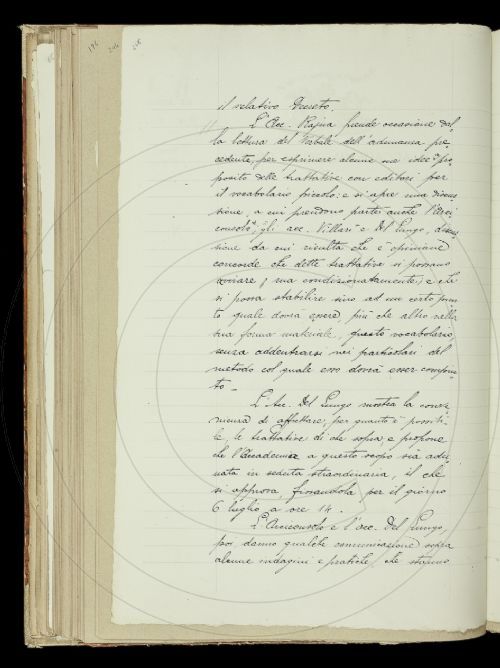 il relativo Decreto.
L'Acc. Rajna prende occasione dal-
la lettura del Verbale dell'adunanza pre-
cedente, per esprimere alcune sue idee a pro-
posito delle trattative con editori per
il vocabolario piccolo: e si apre una discus-
sione, a cui prendono parte anche l'Arci-
consolo, gli acc. Villari e Del Lungo, discus-
sione da cui risulta che è opinione
concorde che dette trattative si possano
avviare, ma condizionatamente, e che
si possa stabilire sino ad un certo pun-
to quale dovrà essere, più che altro nella
sua forma materiale, questo vocabolario,
senza addentrarsi nei particolari del
metodo col quale esso dovrà esser compiu-
to.
L'Acc. Del Lungo mostra la conve-
nienza di affrettare, per quanto è possibi-
le, le trattative di che sopra, e propone
che l'Accademia a questo scopo sia adu-
nata in seduta straordinaria, il che
si approva, fissandola per il giorno
6 luglio a ore 14.
L'Arciconsolo e l'acc. Del Lungo,
poi danno qualche comunicazione sopra
alcune indagini e pratiche, che stanno